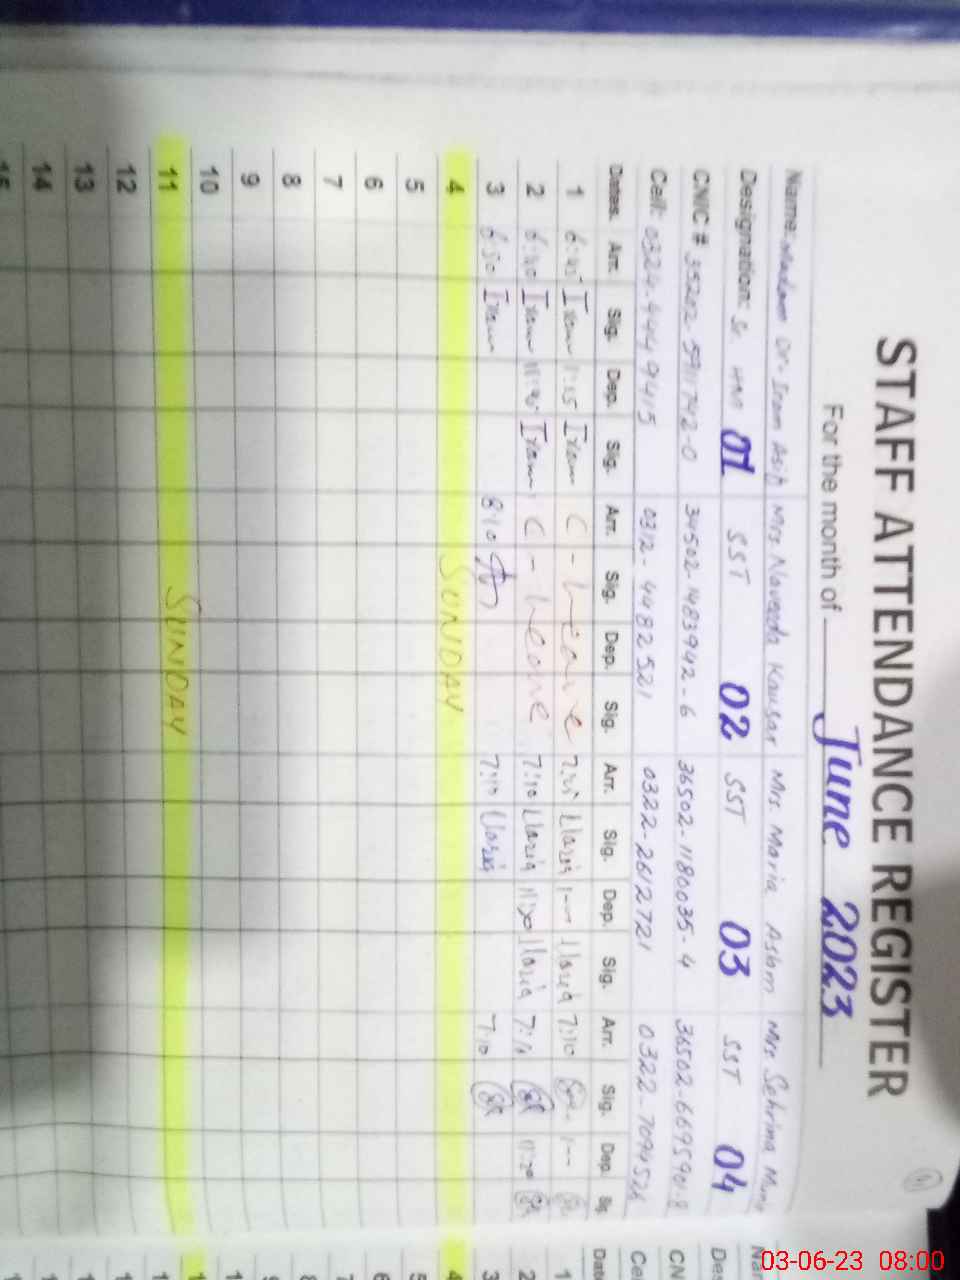 STAFF ATTENDANCE REGISTER
For the month of June 2023
Name: Madam Dr. Iram Asif Mrs. Naveeda Kausar Mrs. Maria Aslam Mrs. Sehrina
Designation: Sr. HM 01 SST 02 SST 03 SST 04
CNIC # 35202-5911742-0 34502-1483942-6 36502-1180035-4 36502-6695901-8
Cell: 0324-4449415 0312-4482521 0322-2612721 0322-7094524
Dates. Arr. Sig. Dep. Sig. Arr. Sig. Dep. Sig. Arr. Sig. Dep. Sig. Arr. Sig. Dep. Sig.
1 6:45 Iram 1:15 Iram C-Leave Maria 1-- Maria 7:10 1--
2 6:40 Iram Iram C-Leave 7:10 Maria 11:30 Maria 7:10 11:20
3 6:50 Iram 8:10 7:10 Maria 7:10
4 SUNDAY
5
6
7
8
9
10
11 SUNDAY
12
13
14
15
03-06-23 08:00